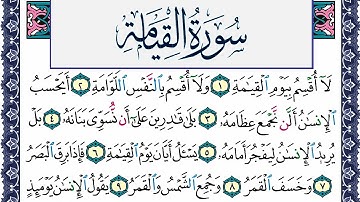 سُورَةُ الْقِيَامَةِ
لَآ أُقْسِمُ بِيَوْمِ ٱلْقِيَـٰمَةِ ١ وَلَآ أُقْسِمُ بِٱلنَّفْسِ ٱللَّوَّامَةِ ٢ أَيَحْسَبُ
ٱلْإِنسَـٰنُ أَلَّن نَّجْمَعَ عِظَامَهُۥ ٣ بَلَىٰ قَـٰدِرِينَ عَلَىٰٓ أَن نُّسَوِّىَ بَنَانَهُۥ ٤ بَلْ
يُرِيدُ ٱلْإِنسَـٰنُ لِيَفْجُرَ أَمَامَهُۥ ٥ يَسْـَٔلُ أَيَّانَ يَوْمُ ٱلْقِيَـٰمَةِ ٦ فَإِذَا بَرِقَ ٱلْبَصَرُ
٧ وَخَسَفَ ٱلْقَمَرُ ٨ وَجُمِعَ ٱلشَّمْسُ وَٱلْقَمَرُ ٩ يَقُولُ ٱلْإِنسَـٰنُ يَوْمَئِذٍ